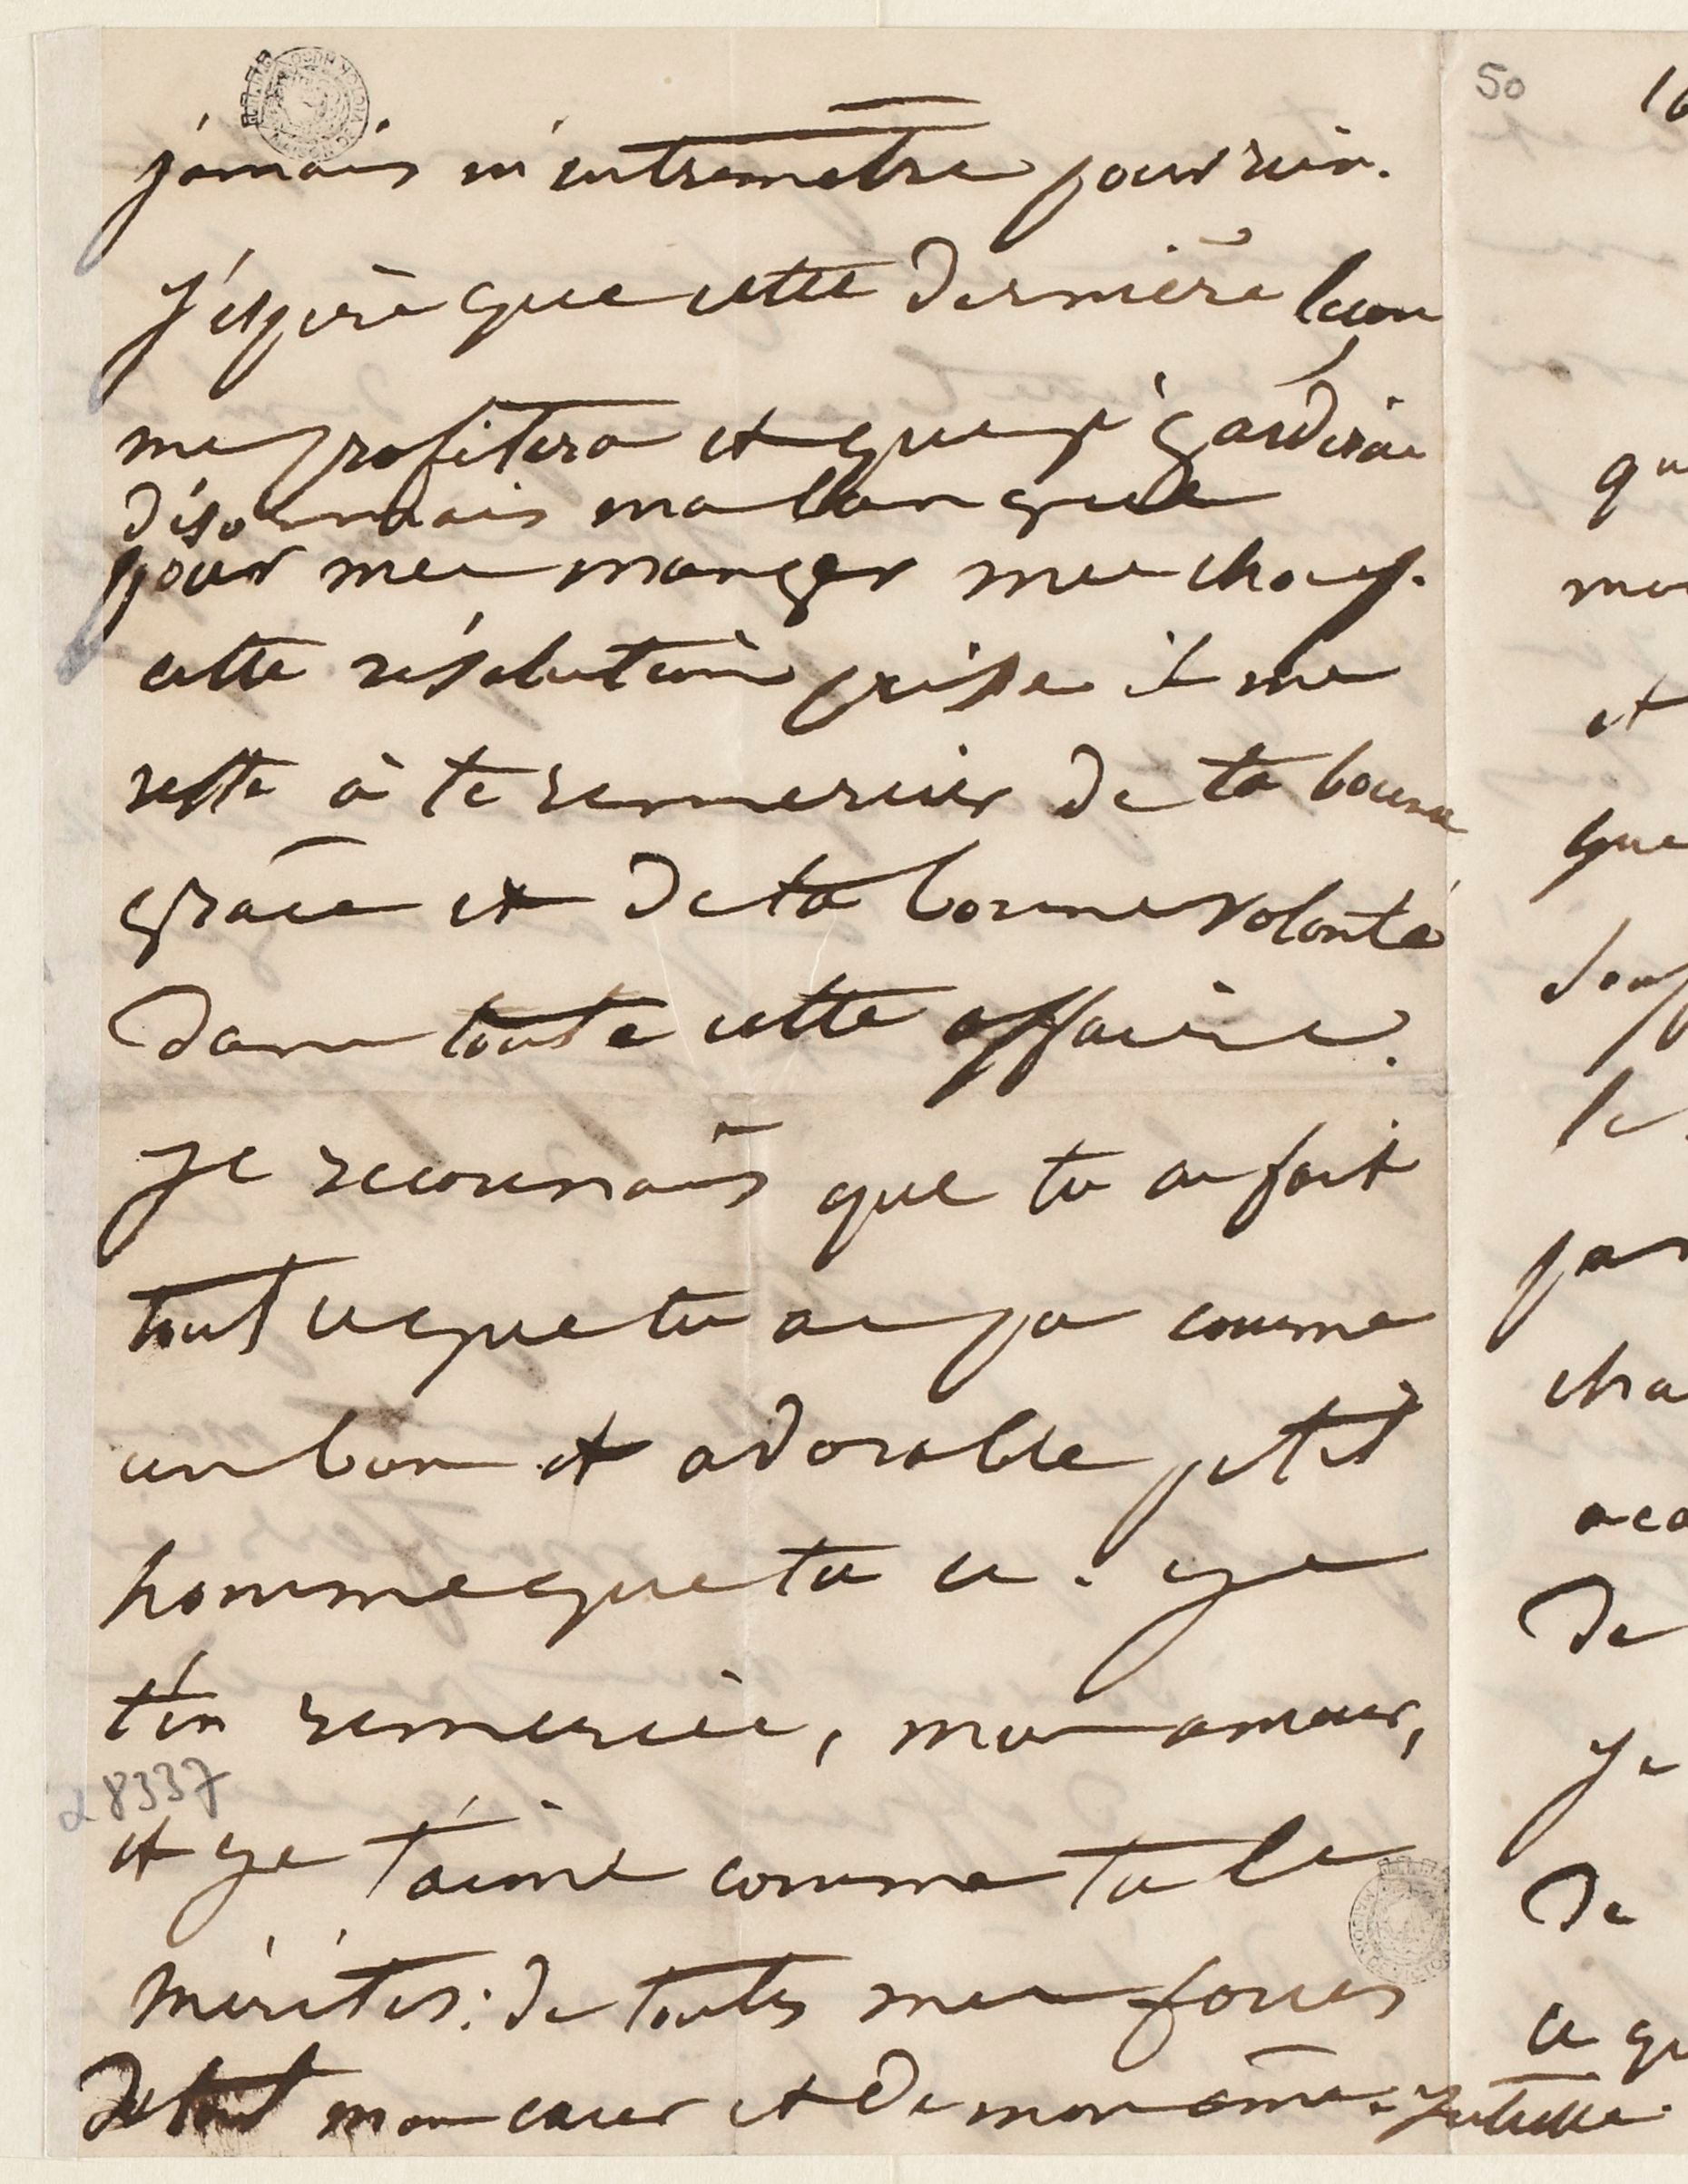 jamais m'entremettre pour rien.
J'espère que cette dernière leçon
me profitera et que je garderai
désormais ma langue
pour me manger mes choux.
cette résolution prise il me
reste à te remercier de ta bonne
grâce et de ta bonne volonté
dans toute cette affaire.
Je reconnais que tu as fait
tout ce que tu as pu comme
un bon et adorable petit
homme que tu es. Je
t'en remercie, mon amour,
28337
et je t'aime comme tu le
mérites : de toutes mes forces
de tout mon cœur et de mon âme. Juliette.
50
qu
et
que
le
par
cha
de
Je
De
ce qu